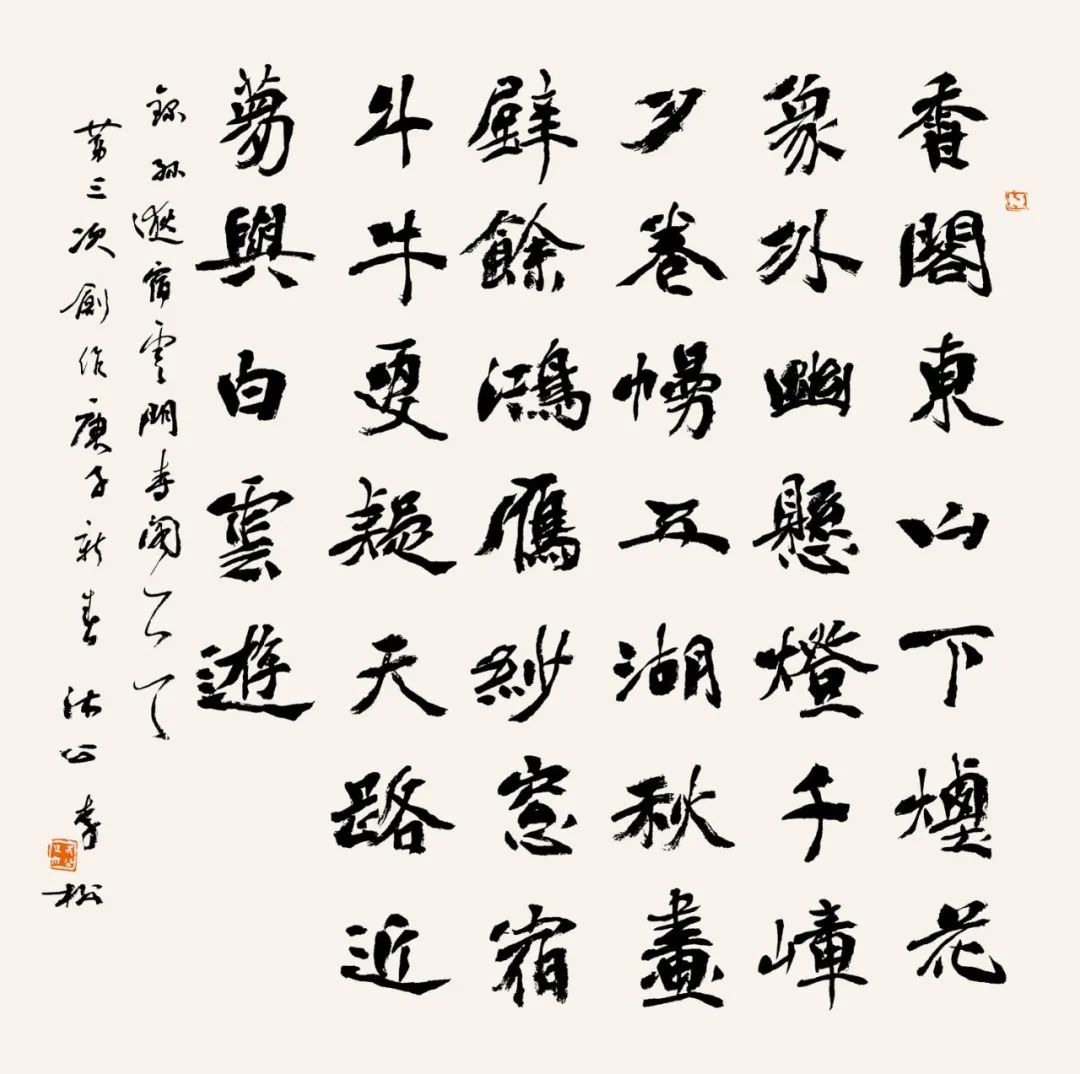 香閣東山下煙花
象外幽懸燈千嶂
夕卷幔五湖秋畫
壁餘鴻鴈紗窓宿
斗牛更疑天路近
夢與白雲遊
錄孫逖宿雲門寺閣
第三次創作庚子新春沐公